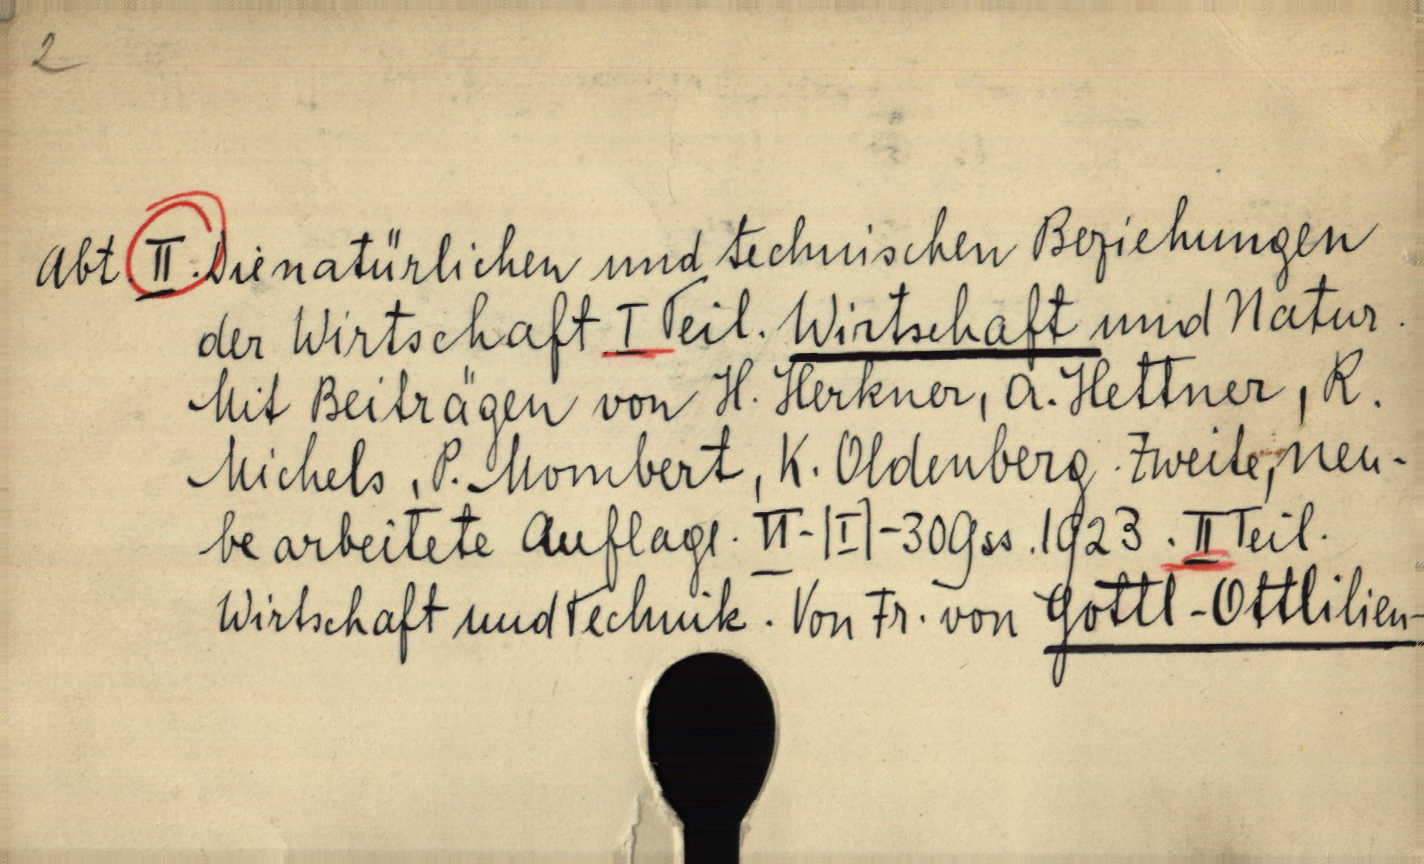 2
Abt II. Die natürlichen und technischen Beziehungen
der Wirtschaft I Teil. Wirtschaft und Natur.
Mit Beiträgen von H. Herkner, A. Hettner, R.
Michels, P. Mombert, K. Oldenberg. Zweite, neu-
bearbeitete Auflage. VI-[I]-309ss. 1923. II Teil.
Wirtschaft und Technik. Von Fr. von Gottl-Ottlilien-